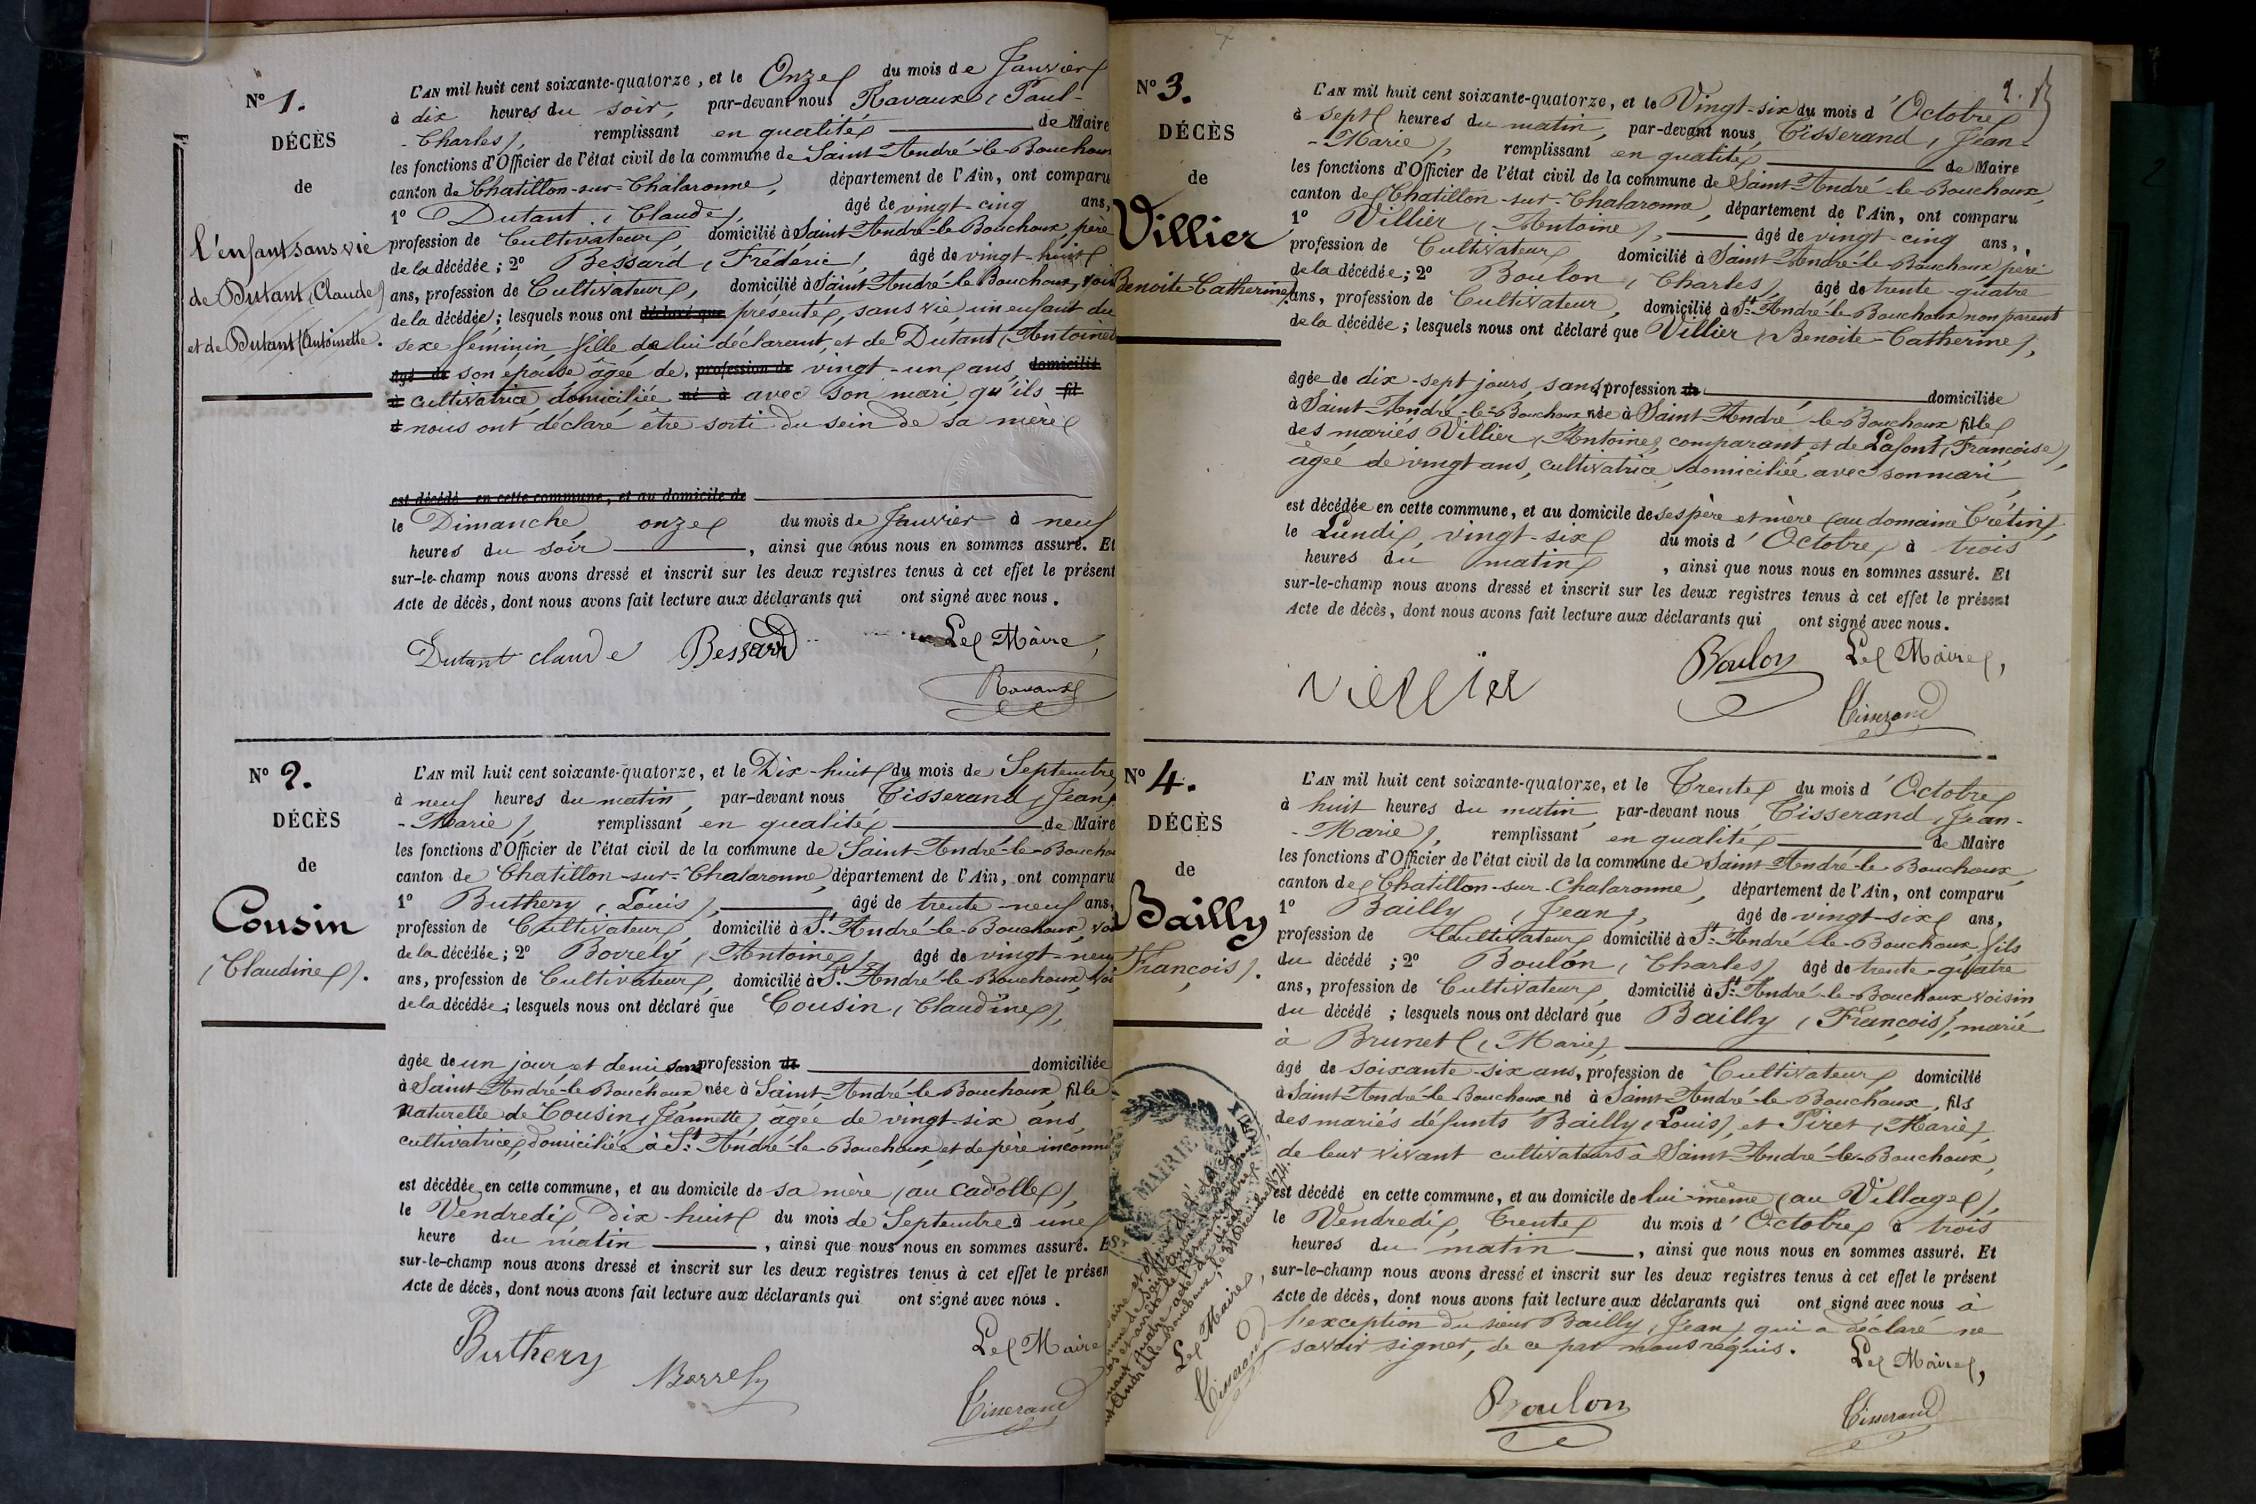 N° 1.
DÉCÈS
de
L'enfant sans vie
de Dutant (Claude)
et de Dutant (Antoinette).
L'AN mil huit cent soixante-quatorze, et le Onze du mois de Janvier
à dix heures du soir, par-devant nous Ravaux (Paul-
-Charles), remplissant en qualité de Maire
les fonctions d'Officier de l'état civil de la commune de Saint-André-le-Bouchoux
canton de Chatillon-sur-Chalaronne, département de l'Ain, ont comparu
1° Dutant (Claude), âgé de vingt-cinq ans,
profession de Cultivateur, domicilié à Saint-André-le-Bouchoux, père
de la décédée; 2° Bessard (Frédéric), âgé de vingt-huit
ans, profession de Cultivateur, domicilié à Saint-André-le-Bouchoux, voisin
de la décédée; lesquels nous ont déclaré que présenté, sans vie, un enfant du
sexe féminin, fille de lui déclarant, et de Dutant (Antoinette)
âgé de son épouse âgée de, profession de vingt-un ans, domicilié
à cultivatrice, domiciliée né à avec son mari, qu'ils fil
nous ont déclaré être sorti du sein de sa mère
est décédé en cette commune, et au domicile de
le Dimanche onze du mois de Janvier à neuf
heures du soir, ainsi que nous nous en sommes assuré. Et
sur-le-champ nous avons dressé et inscrit sur les deux registres tenus à cet effet le présent
Acte de décès, dont nous avons fait lecture aux déclarants qui ont signé avec nous.
Dutant claude Bessard Le Maire,
Ravaux
N° 2.
DÉCÈS
de
Cousin
(Claudine).
L'AN mil huit cent soixante-quatorze, et le Dix-huit du mois de Septembre
à neuf heures du matin, par-devant nous Tisserand (Jean
-Marie), remplissant en qualité de Maire
les fonctions d'Officier de l'état civil de la commune de Saint-André-le-Boucho
canton de Chatillon-sur-Chalaronne, département de l'Ain, ont comparu
1° Buthery (Louis), âgé de trente-neuf ans,
profession de Cultivateur, domicilié à St-André-le-Bouchoux, voi
de la décédée; 2° Borrely (Antoine), âgé de vingt-neuf
ans, profession de Cultivateur, domicilié à St-André-le-Bouchoux, voi
de la décédée; lesquels nous ont déclaré que Cousin (Claudine),
âgée de un jour et demi sans profession de domiciliée
à Saint-André-le-Bouchoux née à Saint-André-le-Bouchoux, fille
naturelle de Cousin (Jeannette), âgée de vingt-six ans,
cultivatrice, domiciliée à St-André-le-Bouchoux et de père inconnu
est décédée en cette commune, et au domicile de sa mère (au Cadolle),
le Vendredi, Dix-huit du mois de Septembre à une
heure du matin, ainsi que nous nous en sommes assuré. E
sur-le-champ nous avons dressé et inscrit sur les deux registres tenus à cet effet le présen
Acte de décès, dont nous avons fait lecture aux déclarants qui ont signé avec nous.
Buthery Borrely Le Maire
Tisserand
2.
N° 3.
DÉCÈS
de
Villier
Benoite-Catherine).
L'AN mil huit cent soixante-quatorze, et le Vingt-six du mois d'Octobre
à sept heures du matin, par-devant nous, Tisserand (Jean-
-Marie), remplissant en qualité de Maire
les fonctions d'Officier de l'état civil de la commune de Saint-André-le-Bouchoux,
canton de Chatillon-sur-Chalaronne, département de l'Ain, ont comparu
1° Villier (Antoine), âgé de vingt-cinq ans,
profession de Cultivateur, domicilié à Saint-André-le-Bouchoux père
de la décédée; 2° Boulon (Charles), âgé de trente-quatre
ans, profession de Cultivateur, domicilié à St-André-le-Bouchoux non parent
de la décédée; lesquels nous ont déclaré que Villier (Benoite-Catherine),
âgée de dix-sept jours, sans profession de domiciliée
à Saint-André-le-Bouchoux née à Saint-André-le-Bouchoux fille
des mariés Villier (Antoine), comparant, et de Lafont (Françoise),
âgée de vingt ans, cultivatrice, domiciliée avec son mari,
est décédée en cette commune, et au domicile de ses père et mère (au domaine Crétin),
le Lundi, vingt-six du mois d'Octobre à trois
heures du matin, ainsi que nous nous en sommes assuré. Et
sur-le-champ nous avons dressé et inscrit sur les deux registres tenus à cet effet le présent
Acte de décès, dont nous avons fait lecture aux déclarants qui ont signé avec nous.
Villier Boulon Le Maire,
Tisserand
N° 4.
DÉCÈS
de
Bailly
François).
L'AN mil huit cent soixante-quatorze, et le Trente du mois d'Octobre
à huit heures du matin, par-devant nous Tisserand (Jean-
-Marie), remplissant en qualité de Maire
les fonctions d'Officier de l'état civil de la commune de Saint-André-le-Bouchoux,
canton de Chatillon-sur-Chalaronne, département de l'Ain, ont comparu
1° Bailly (Jean), âgé de vingt-six ans,
profession de Cultivateur, domicilié à St-André-le-Bouchoux, fils
du décédé; 2° Boulon (Charles) âgé de trente-quatre
ans, profession de Cultivateur, domicilié à St-André-le-Bouchoux, voisin
du décédé; lesquels nous ont déclaré que Bailly (François), marié
à Brunet (Marie),
âgé de soixante-six ans, profession de Cultivateur, domicilié
à Saint-André-le-Bouchoux né à Saint-André-le-Bouchoux, fils
des mariés défunts Bailly (Louis), et Piret (Marie),
de leur vivant cultivateurs à Saint-André-le-Bouchoux,
est décédé en cette commune, et au domicile de lui-même (au Village),
le Vendredi, Trente du mois d'Octobre à trois
heures du matin, ainsi que nous nous en sommes assuré. Et
sur-le-champ nous avons dressé et inscrit sur les deux registres tenus à cet effet le présent
Acte de décès, dont nous avons fait lecture aux déclarants qui ont signé avec nous à
l'exception du sieur Bailly (Jean) qui a déclaré ne
savoir signer, de ce par nous réquis. Le Maire,
Boulon Tisserand
MAIRIE
Le Maire,
Tisserand